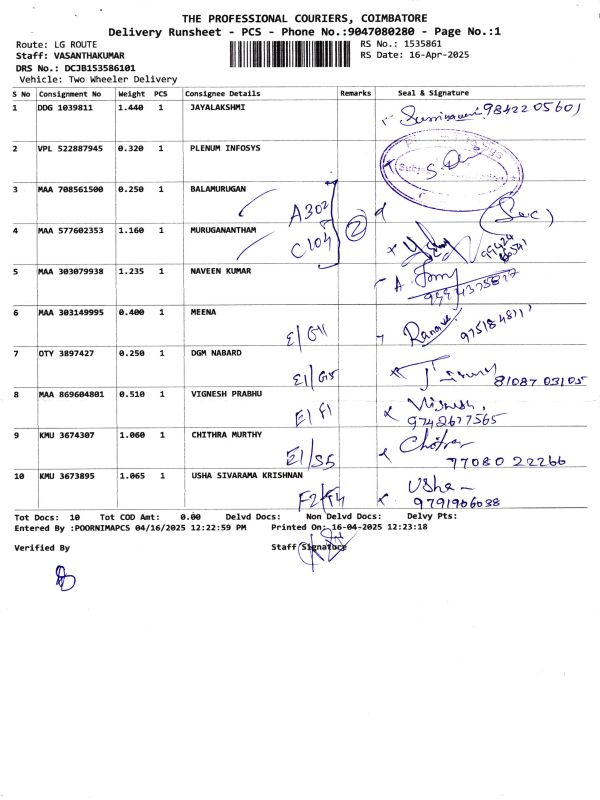 THE PROFESSIONAL COURIERS, COIMBATORE
Delivery Runsheet - PCS - Phone No.:9047080280 - Page No.:1
Route: LG ROUTE RS No.: 1535861
Staff: VASANTHAKUMAR RS Date: 16-Apr-2025
DRS No.: DCJB153586101
Vehicle: Two Wheeler Delivery
S No Consignment No Weight PCS Consignee Details Remarks Seal & Signature
1 DDG 1039811 1.440 1 JAYALAKSHMI 9842205601
2 VPL 522887945 0.320 1 PLENUM INFOSYS
3 MAA 708561500 0.250 1 BALAMURUGAN
A302
(Sec)
4 MAA 577602353 1.160 1 MURUGANANTHAM
C104 2
5 MAA 303079938 1.235 1 NAVEEN KUMAR
6 MAA 303149995 0.400 1 MEENA
E/G11
7 OTY 3897427 0.250 1 DGM NABARD
E1/G5 81087 03105
8 MAA 869604801 0.510 1 VIGNESH PRABHU Vignesh,
E1 F1 9742677565
9 KMU 3674307 1.060 1 CHITHRA MURTHY Chitra
E1/S5 77080 22266
10 KMU 3673895 1.065 1 USHA SIVARAMA KRISHNAN Usha
F2/F4 9791906038
Tot Docs: 10 Tot COD Amt: 0.00 Delvd Docs: Non Delvd Docs: Delvy Pts:
Entered By :POORNIMAPCS 04/16/2025 12:22:59 PM Printed On: 16-04-2025 12:23:18
Verified By Staff Signature